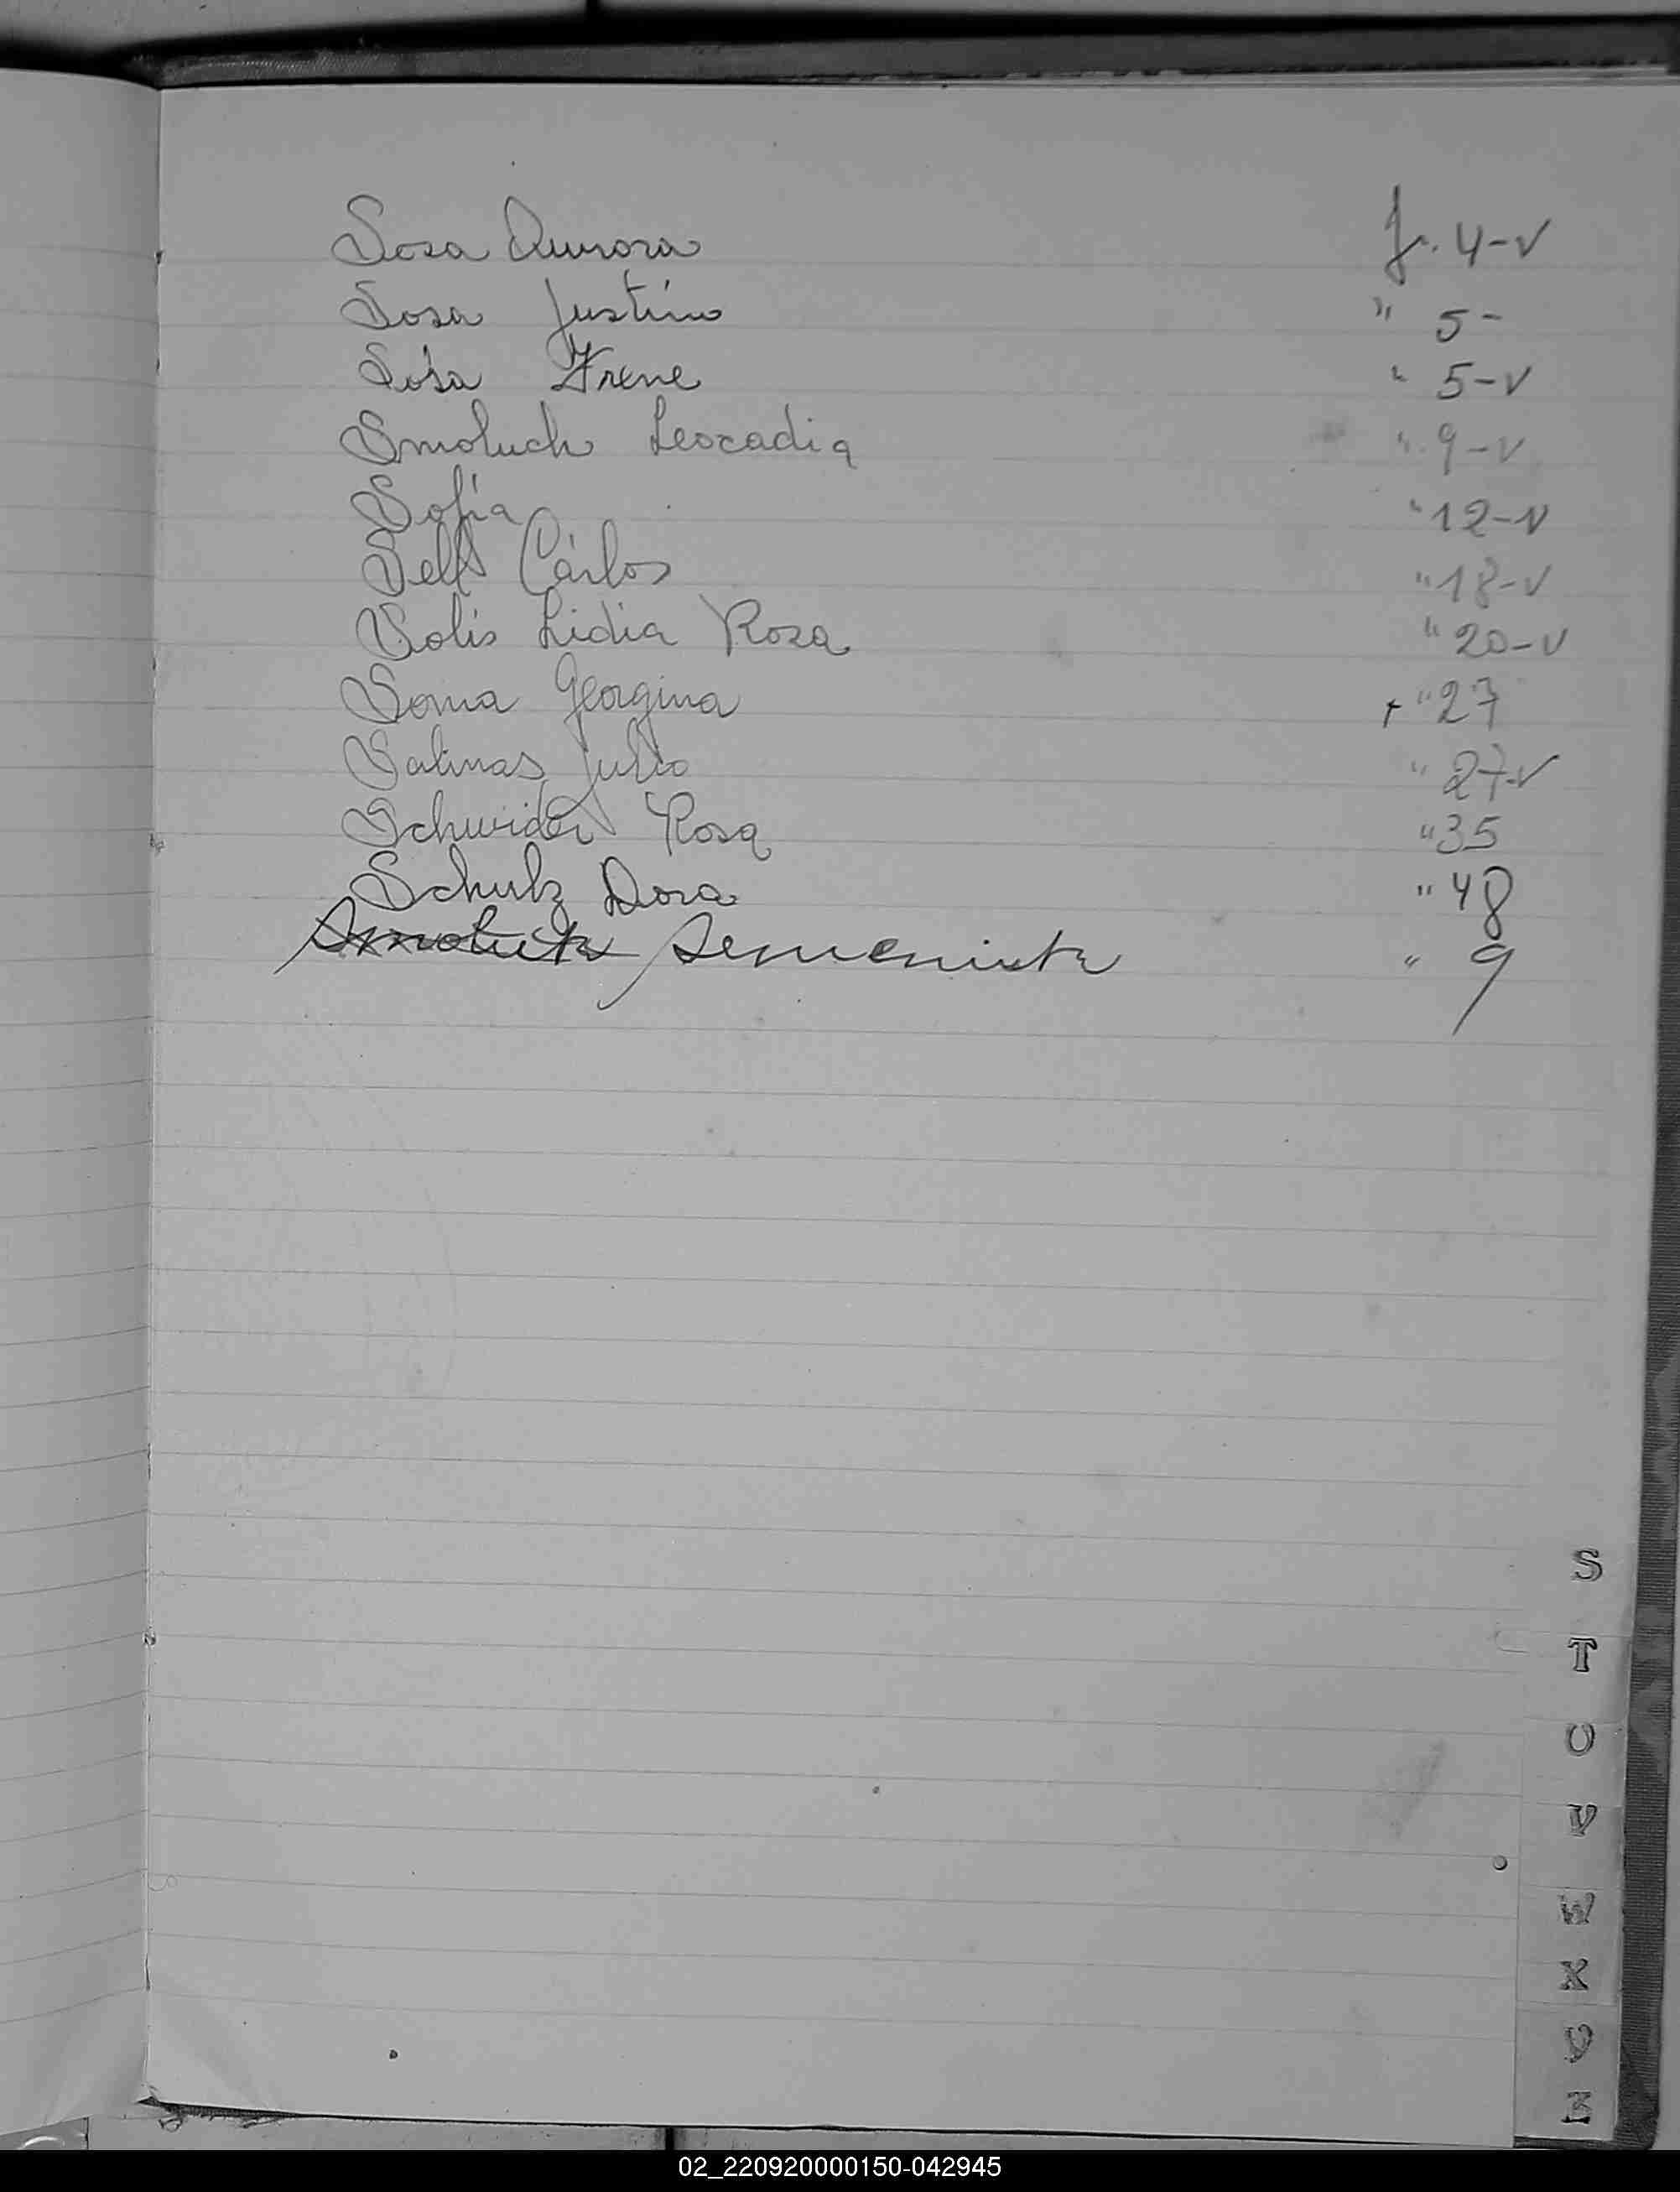 Sosa Aurora fs. 4-v
Sosa Justino " 5-
Sosa Irene " 5-v
Smoluch Leocadia " 9-v
Sofia " 12-v
Sell Carlos " 18-v
Solis Lidia Rosa " 20-v
Soma Georgina + " 27
Salinas Julio " 27-v
Schwider Rosa " 35
Schulz Dora " 48
Smoluch " 9
S
T
U
V
W
X
Y
Z
02_220920000150-042945